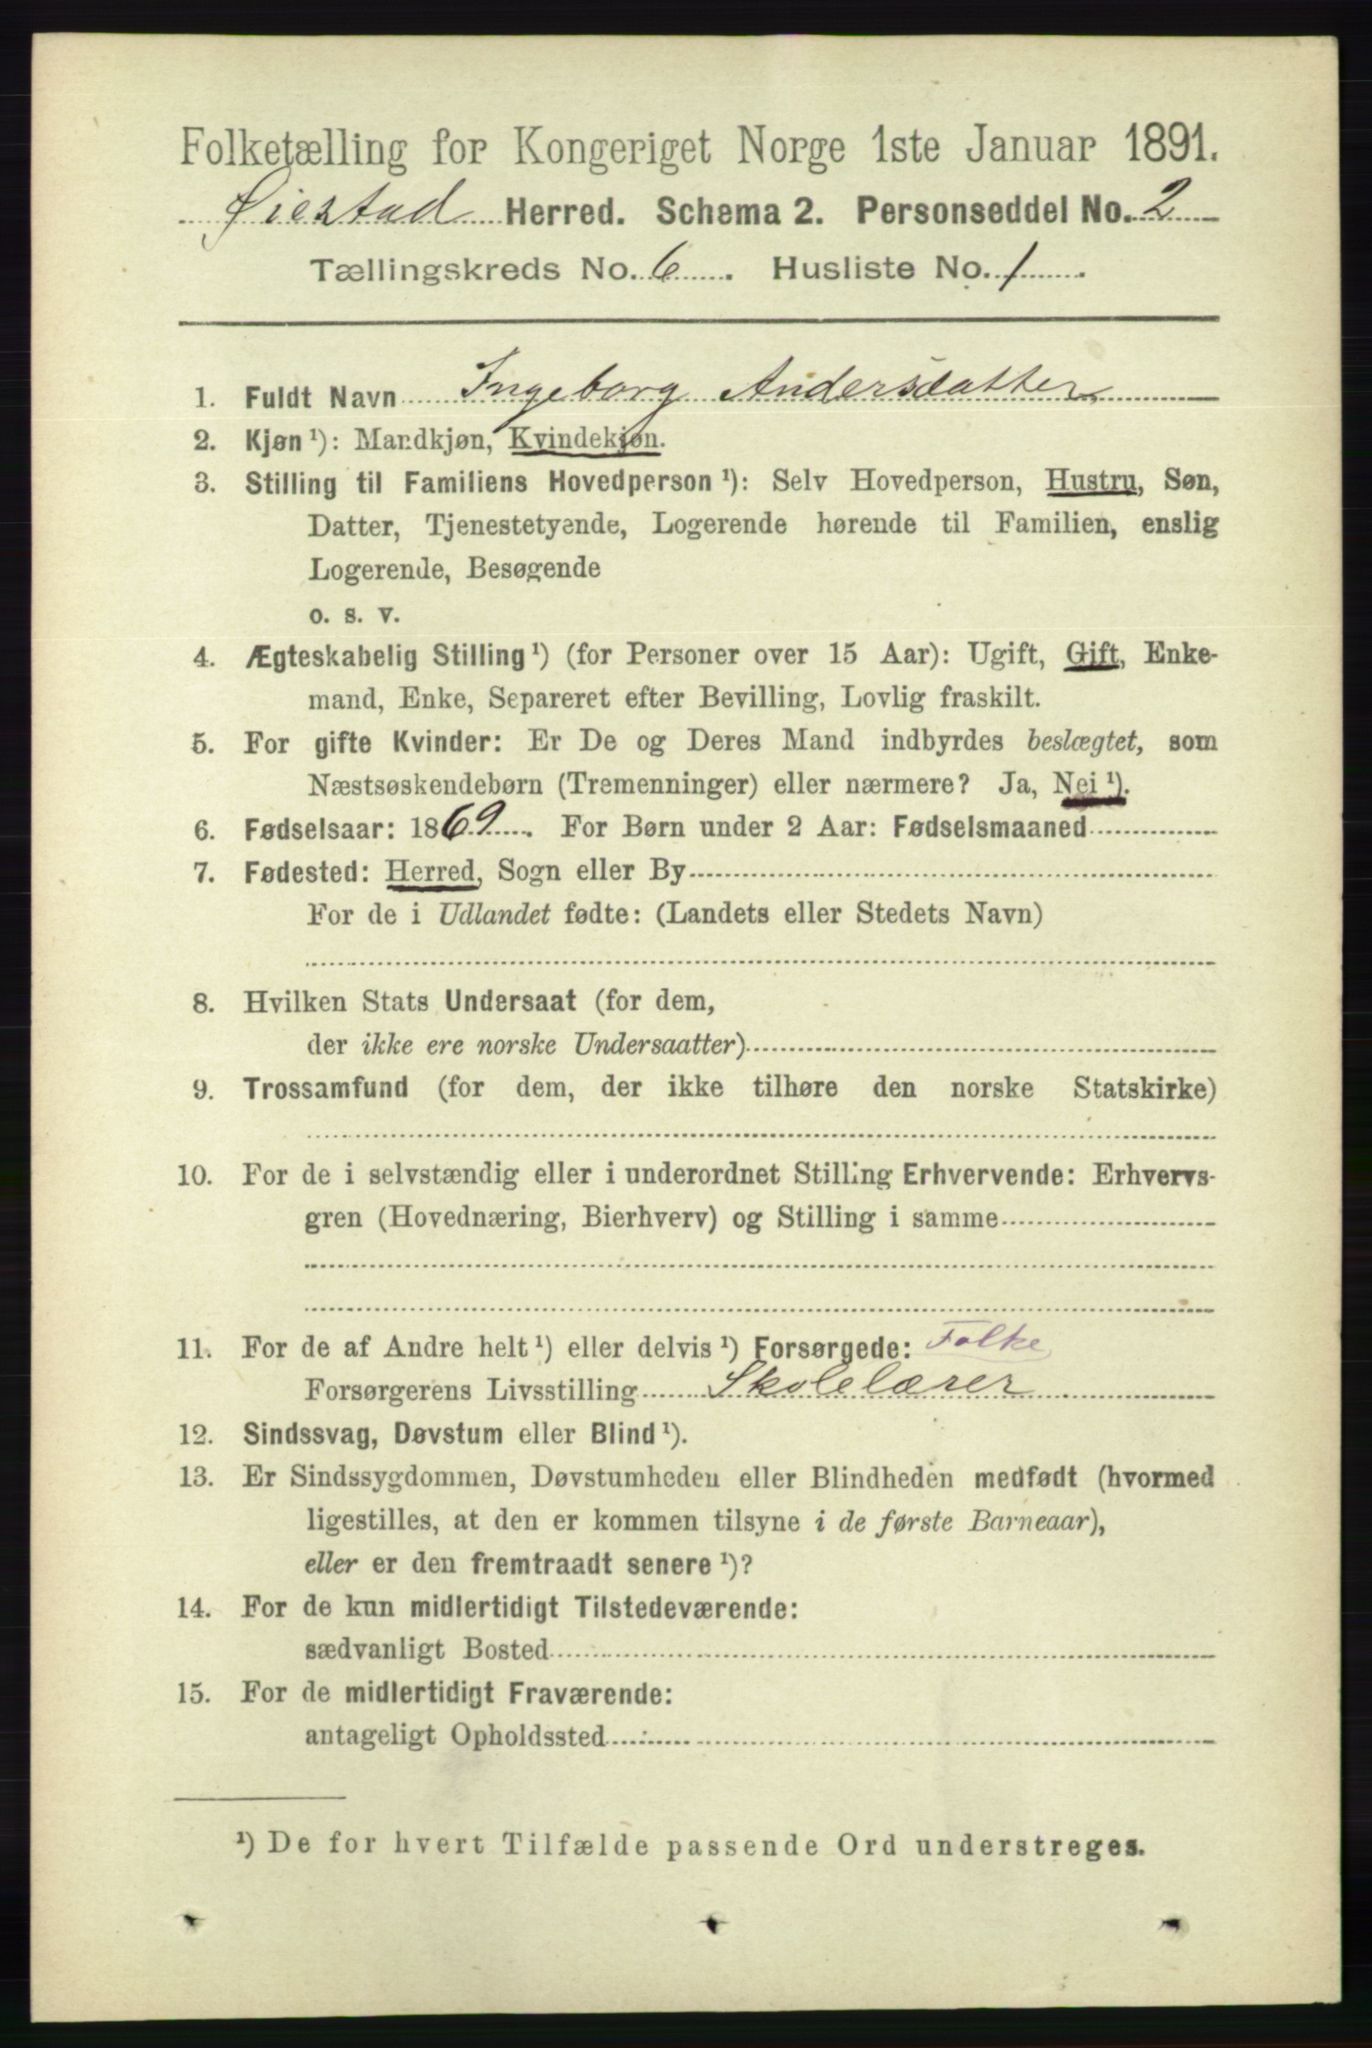 Folketælling for Kongeriget Norge 1ste Januar 1891.
Øiestad Herred. Schema 2. Personseddel No. 2
Tællingskreds No. 6. Husliste No. 1.
1. Fuldt Navn Ingeborg Andersdatter
2. Kjøn ¹): Mandkjøn, Kvindekjøn.
3. Stilling til Familiens Hovedperson ¹): Selv Hovedperson, Hustru, Søn,
Datter, Tjenestetyende, Logerende hørende til Familien, enslig
Logerende, Besøgende
o. s. v.
4. Ægteskabelig Stilling ¹) (for Personer over 15 Aar): Ugift, Gift, Enke-
mand, Enke, Separeret efter Bevilling, Lovlig fraskilt.
5. For gifte Kvinder: Er De og Deres Mand indbyrdes beslægtet, som
Næstsøskendebørn (Tremenninger) eller nærmere? Ja, Nei ¹).
6. Fødselsaar: 1869. For Børn under 2 Aar: Fødselsmaaned
7. Fødested: Herred, Sogn eller By
For de i Udlandet fødte: (Landets eller Stedets Navn)
8. Hvilken Stats Undersaat (for dem,
der ikke ere norske Undersaatter)
9. Trossamfund (for dem, der ikke tilhøre den norske Statskirke)
10. For de i selvstændig eller i underordnet Stilling Erhvervende: Erhvervs-
gren (Hovednæring, Bierhverv) og Stilling i samme
11. For de af Andre helt ¹) eller delvis ¹) Forsørgede: Folke
Forsørgerens Livsstilling Skolelærer
12. Sindssvag, Døvstum eller Blind ¹).
13. Er Sindssygdommen, Døvstumheden eller Blindheden medfødt (hvormed
ligestilles, at den er kommen tilsyne i de første Barneaar),
eller er den fremtraadt senere ¹)?
14. For de kun midlertidigt Tilstedeværende:
sædvanligt Bosted
15. For de midlertidigt Fraværende:
antageligt Opholdssted
¹) De for hvert Tilfælde passende Ord understreges.